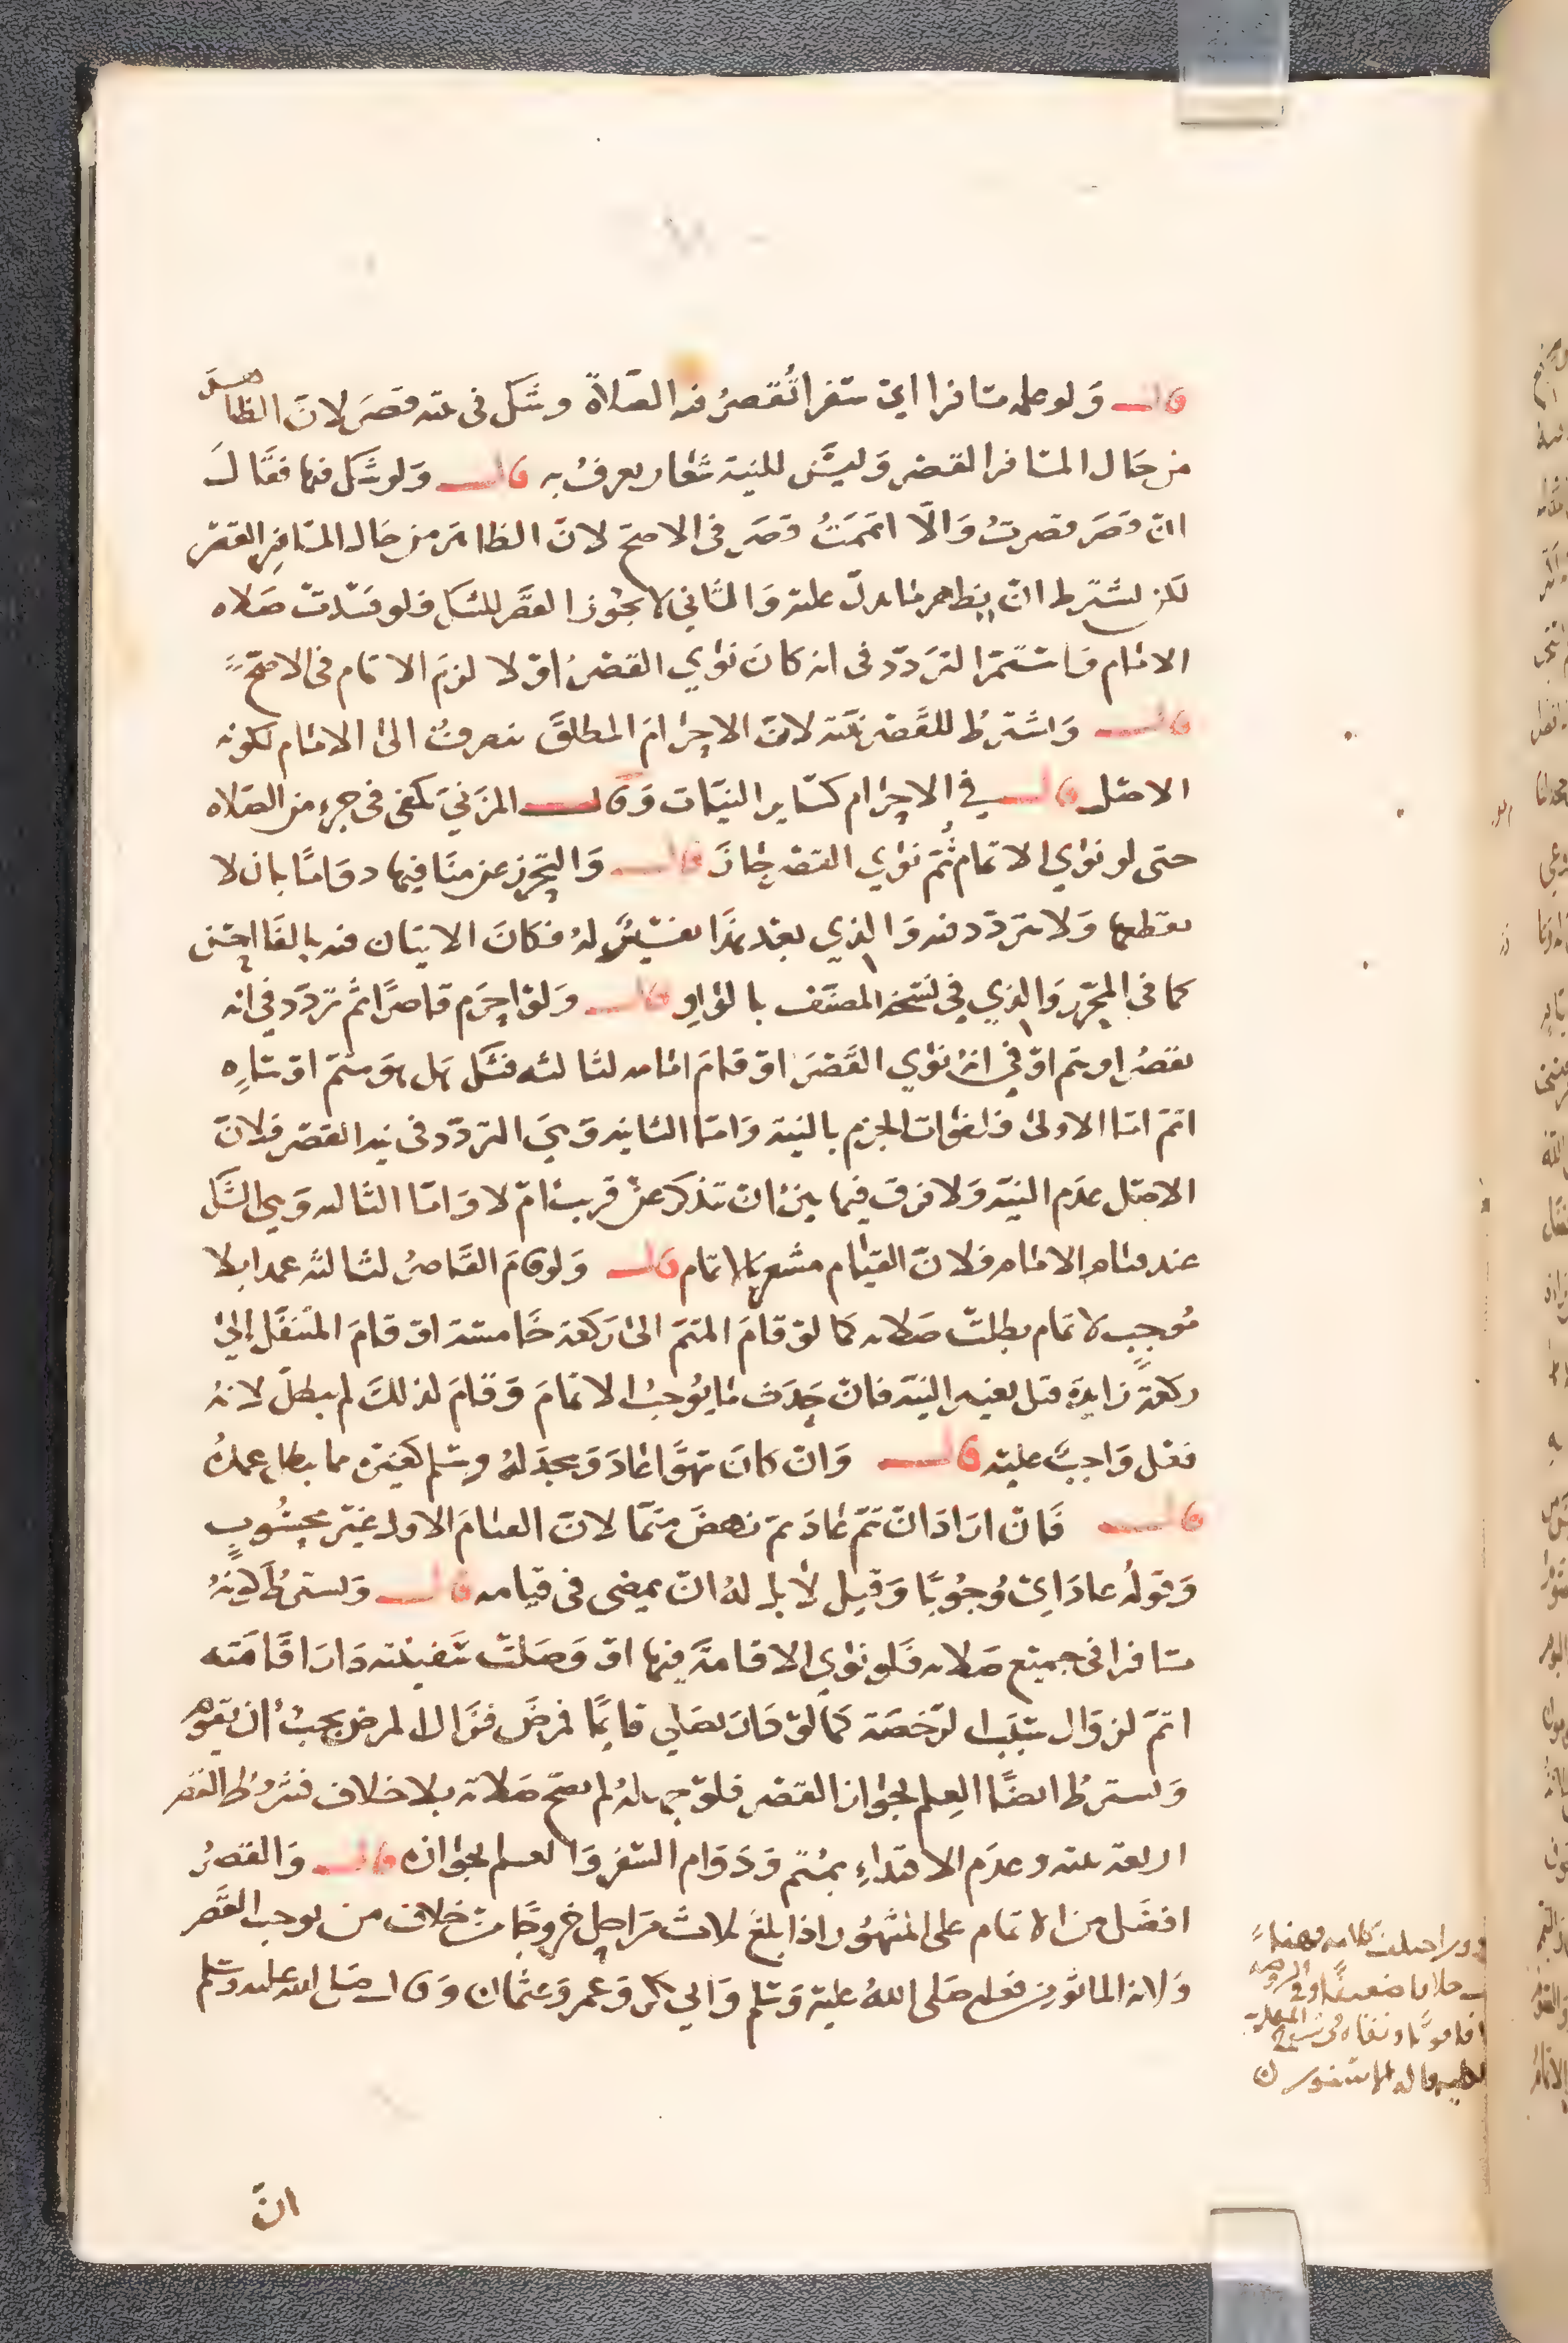 قال ولو علمه مسافرا اي سفرا تُقصرُ فيه الصلاة وشك في نيته قصَر لانّ الظاهر
من حَال المسَافر القصر وَليسَ للنية شعار يعرفُ به قال وَلو شك فيها فقال
ان قصَر قصرتُ وَالّا اتممتُ قصَر في الاصح لانّ الظاهرَ من حَال المسَافِر القصر
لكن يشترط ان يظهر ما يدلّ عليه وَالثاني لا يجُوز القصَر للشك فلو فسَدت صَلاه
الامَام فَاستمرّ التردّد في انه كانَ نوَي القصرُ اوْ لا لزمَ الاتمام في الاصحّ
قال وَيشترطُ للقصر نيّته لانّ الاحرَامَ المطلقَ ينصرفُ الى الاتمام لكونه
الاصْل قال في الاحرَام كسَاير النيّات وَقال المزَنيّ يكفي في جزءٍ من الصّلاه
حتى لو نوَي الاتمام ثُمّ نوَي القصْر جَازَ قال وَالتحرّز عن منَافيها دوَامًا بان لا
يقطعها وَلا يتردّد فيه وَالذي بعْد هذَا تفسيْرٌ لهُ فكانَ الاتيَان فيه بالفَا احسَن
كما في المحرّر وَالذي في نسْخة المصنّف بالوَاو قال وَلوْ احرَم قاصرًا ثُمّ تردّد في انه
يقصُر او يتم اوْ في انهُ نوَي القَصْرَ اوْ قامَ امَامه لثالثه فشَك هَل هوَ متمّ اوْ سَاهٍ
اتمّ امّا الاولى فلفوَات الجزم بالنيّة وَامّا الثانيه وَهيَ التردّد في نيه القصْر فلانّ
الاصْل عدَم النيّة وَلا فرق فيما بينْ ان تذكرَ عنْ قريب امْ لا وَامّا الثالثه وَهي الشَك
عند قيَام الامَام فَلانّ القيَام مشعر بالاتمام قال وَلو قامَ القَاصرُ لثالثه عمدا بلا
مُوجِبٍ لاتمام بطلتْ صَلاته كما لوْ قامَ المتمّ الى رَكعة خَامسَة اوْ قامَ المتنفّل إلىَ
ركعةٍ زايدَة قبل تغيير النيّة فانْ حَدَث مَا يُوجبُ الاتمامَ وَقامَ لذلكَ لم يبطل لانهُ
فعْل وَاجبٌ عليه قال وَانْ كانَ سَهوًا عَادَ وَسجَدَ لهُ وَسَلم كغيره مما يبطل عمدُهُ
قال فَانْ ارَادَ انْ يتمّ عَادَ ثمّ نهضَ متمّا لانّ القيَامَ الاول غيْر محسُوبٍ
وَقولُه عادَ ايْ وُجُوبًا وَقيل لا بل لهُ انْ يمضي في قيامه قال وَيشترَطُ كَونهُ
مسَافرا في جميع صَلاته فَلو نوَي الاقامَة فيها اوْ وَصَلتْ سَفينته دَارَ اقَامَته
اتمّ لزوَال سَبَب الرّخصَة كمَا لوْ كَانَ يصَلي قاعدًا لمرضٍ فزَال المرض يجبُ ان يقوم
وَيشترطُ ايضًا العِلم بجوَاز القصْر فلوْ جهله لم تصحّ صَلاته بلا خلاف فشرُوط القصر
اربعة نيته وعدَم الاقتدَاءِ بمُتم وَدَوَام السّفر وَالعلم بجوَازه قال وَالقصْرُ
افضَل من الاتمام على المشهُور اذا بلغَ ثلاثَ مرَاحل خرُوجًا من خلاف من يوجب القصَر
وَلانه الماثور من فعله صَلى اللهُ عليه وَسَلم وَابي بكر وَعمر وَعثمان وَقال صَلى الله عليه وسَلم
انّ